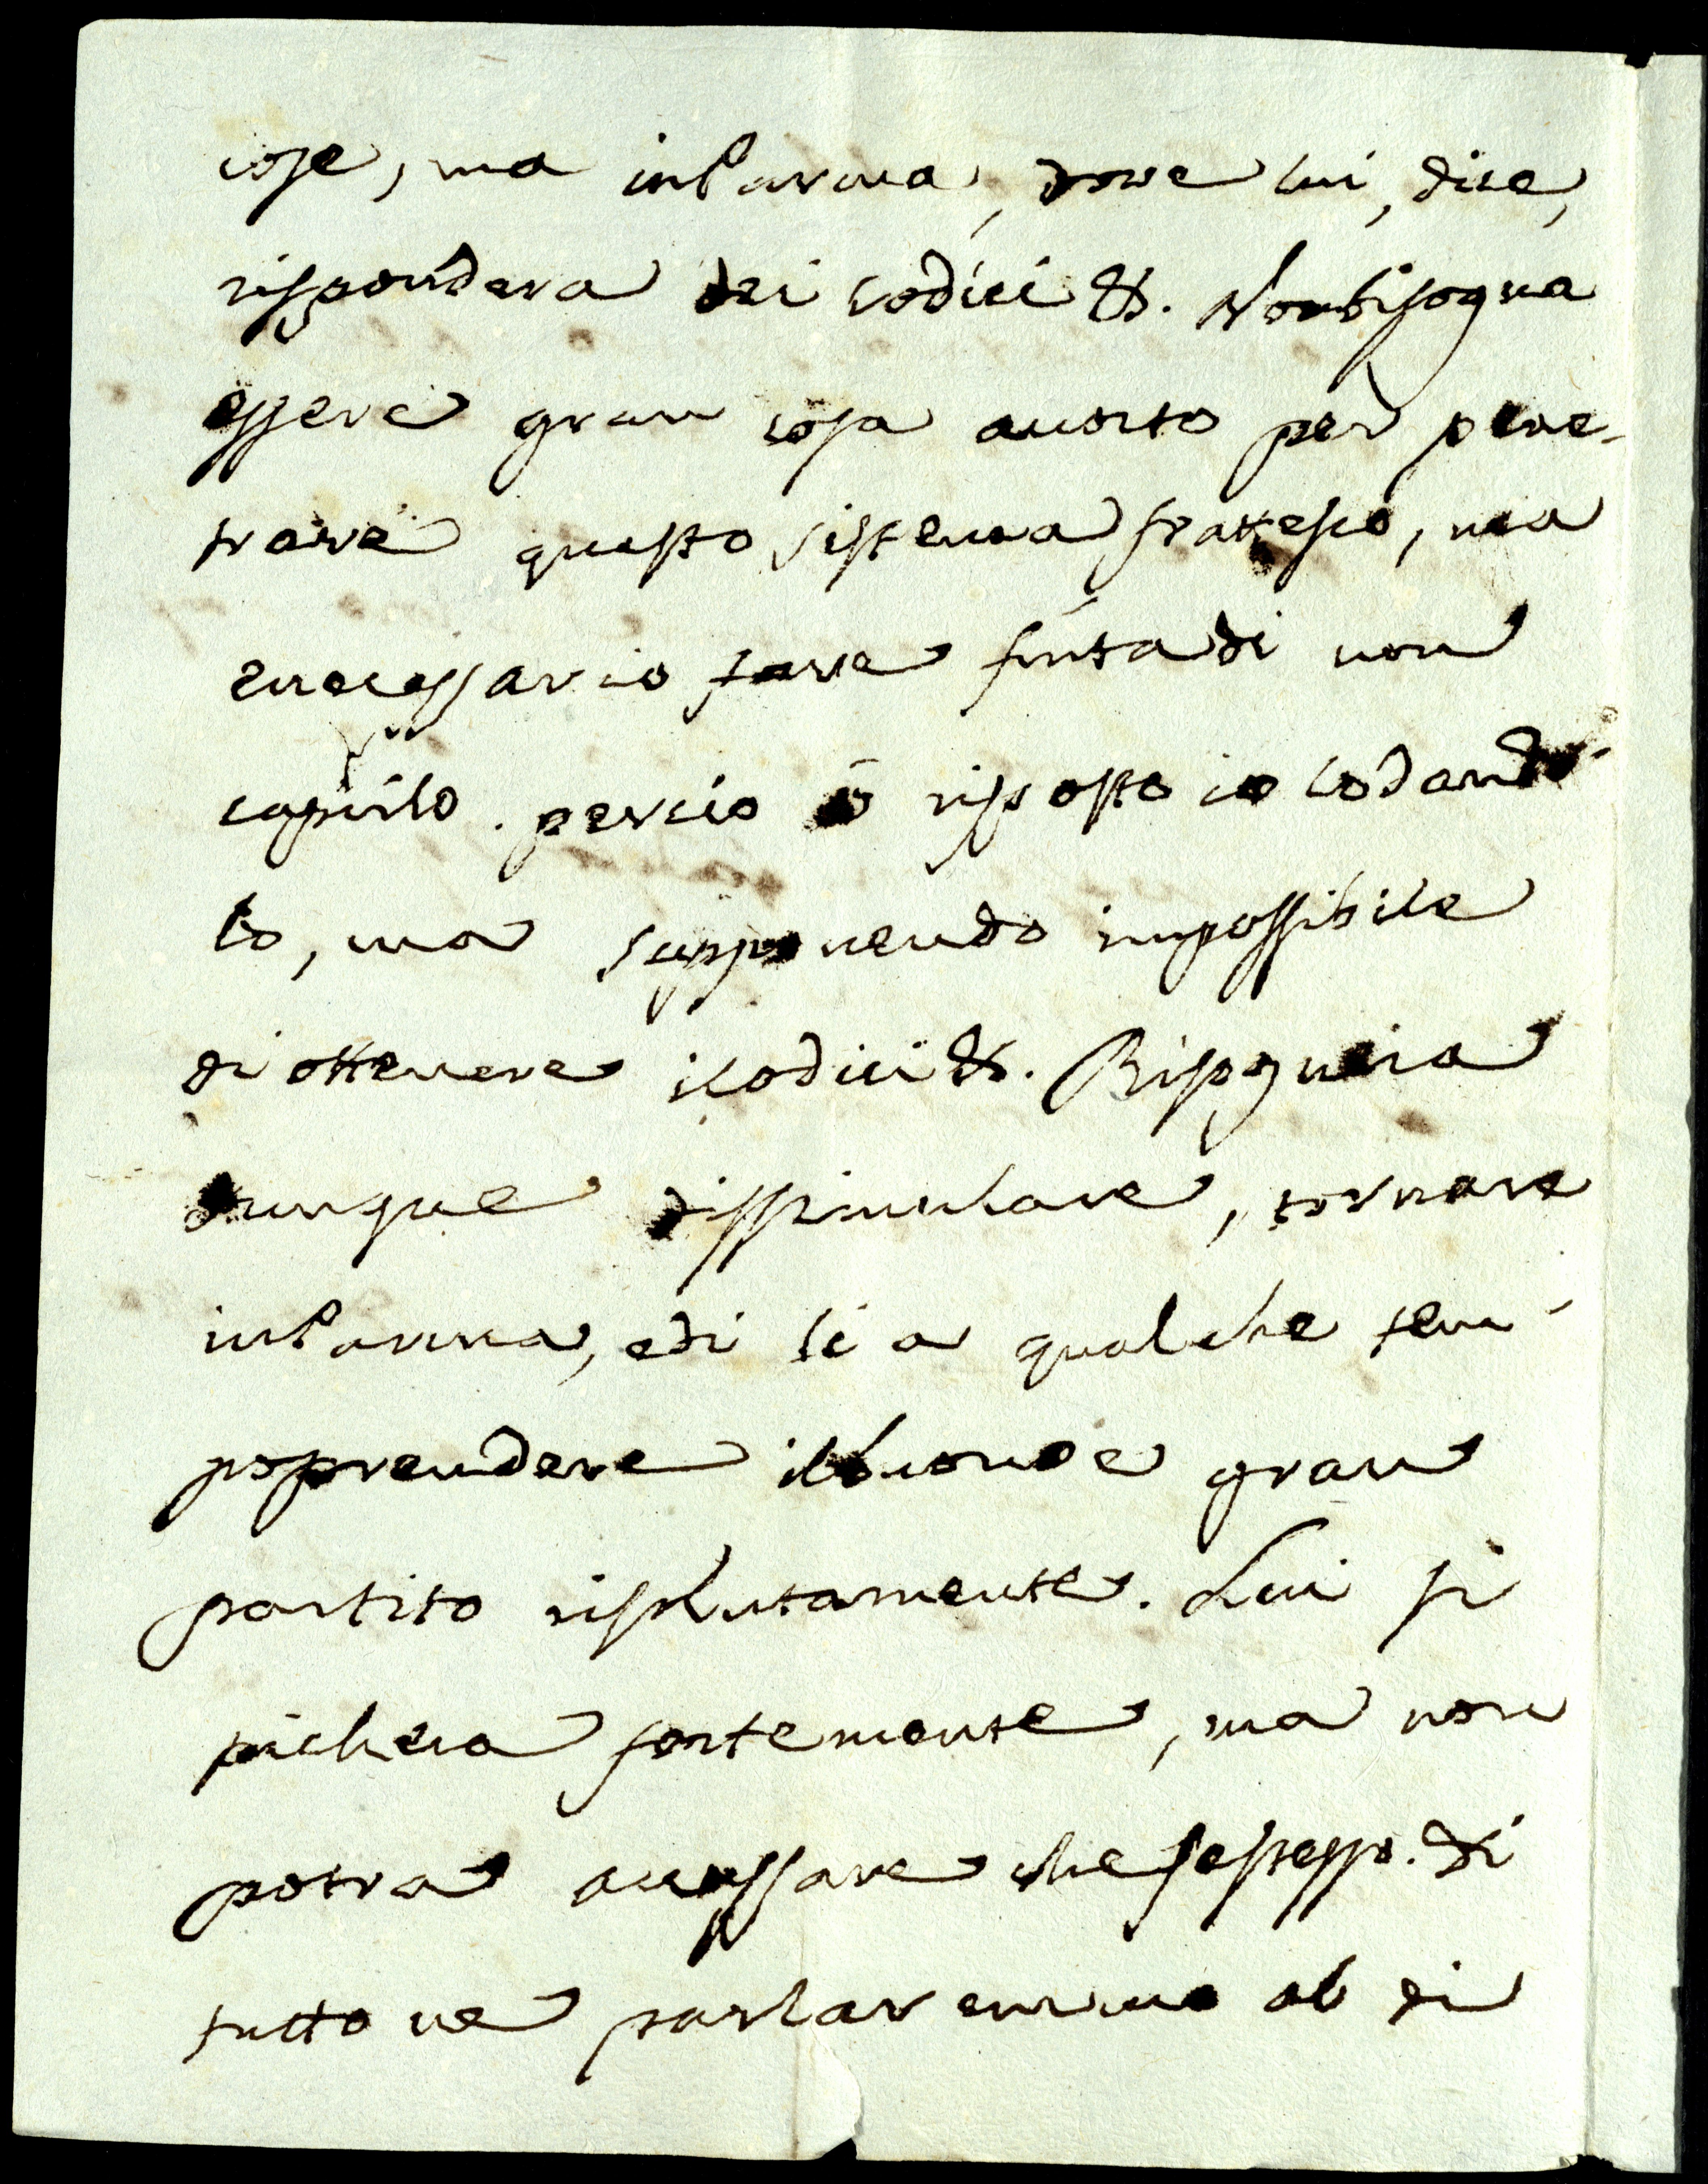 cose, ma in Parma, dove lui, dice,
rispondera dei codici &. Non bisogna
essere gran cosa acorto per pene-
trare questo sistema fratesco, ma
e necessario fare finta di non
capirlo. percio ò risposto io lodando-
lo, ma supponendo impossibile
di ottenere i codici &. Bisogneia
dunque dissimulare, tornare
in Parma, e di li a qualche tem-
po prendere il buono e gran
partito risolutamente. Lui si
pichera fortemente, ma non
potra accusare che se stesso. di
tutto ne parlaremmo al di